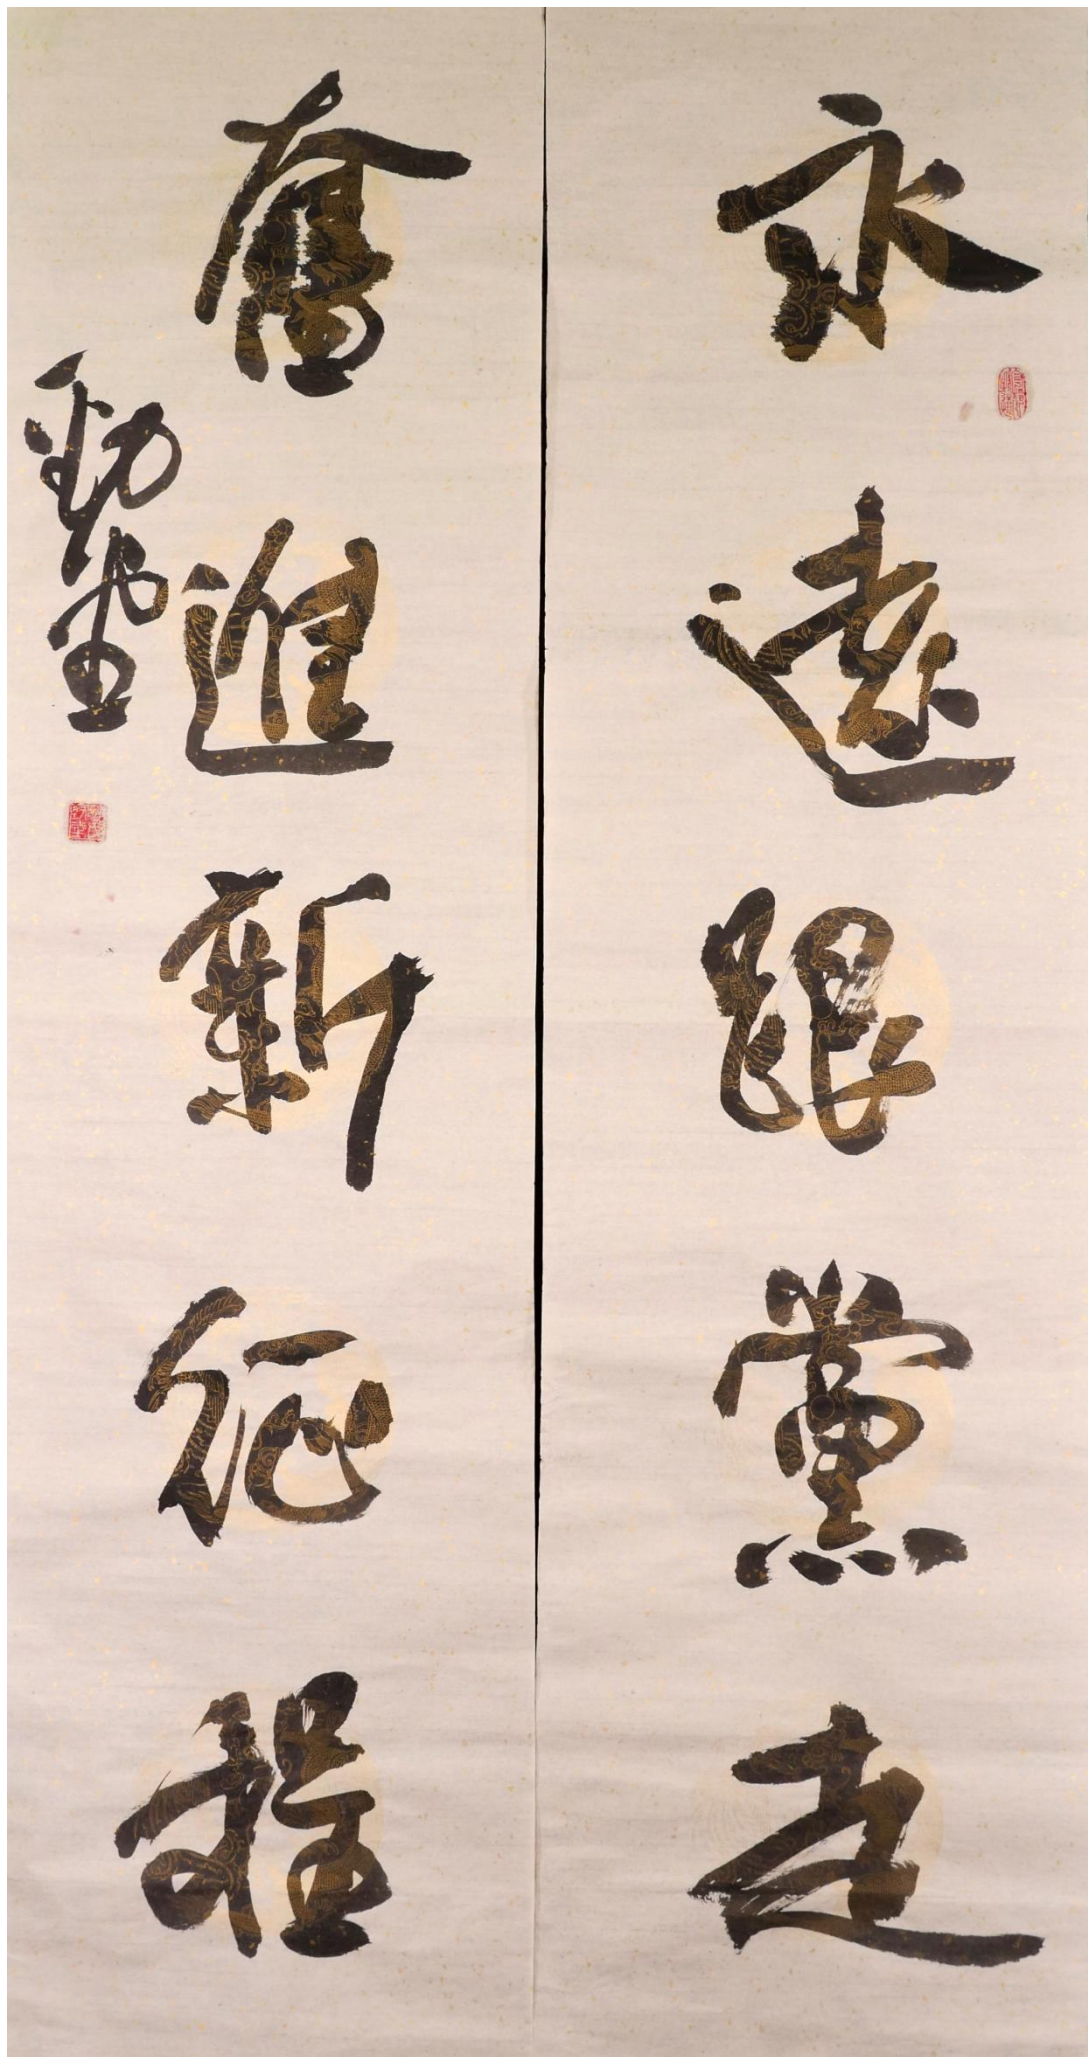 永遠跟黨走
奮進新征程